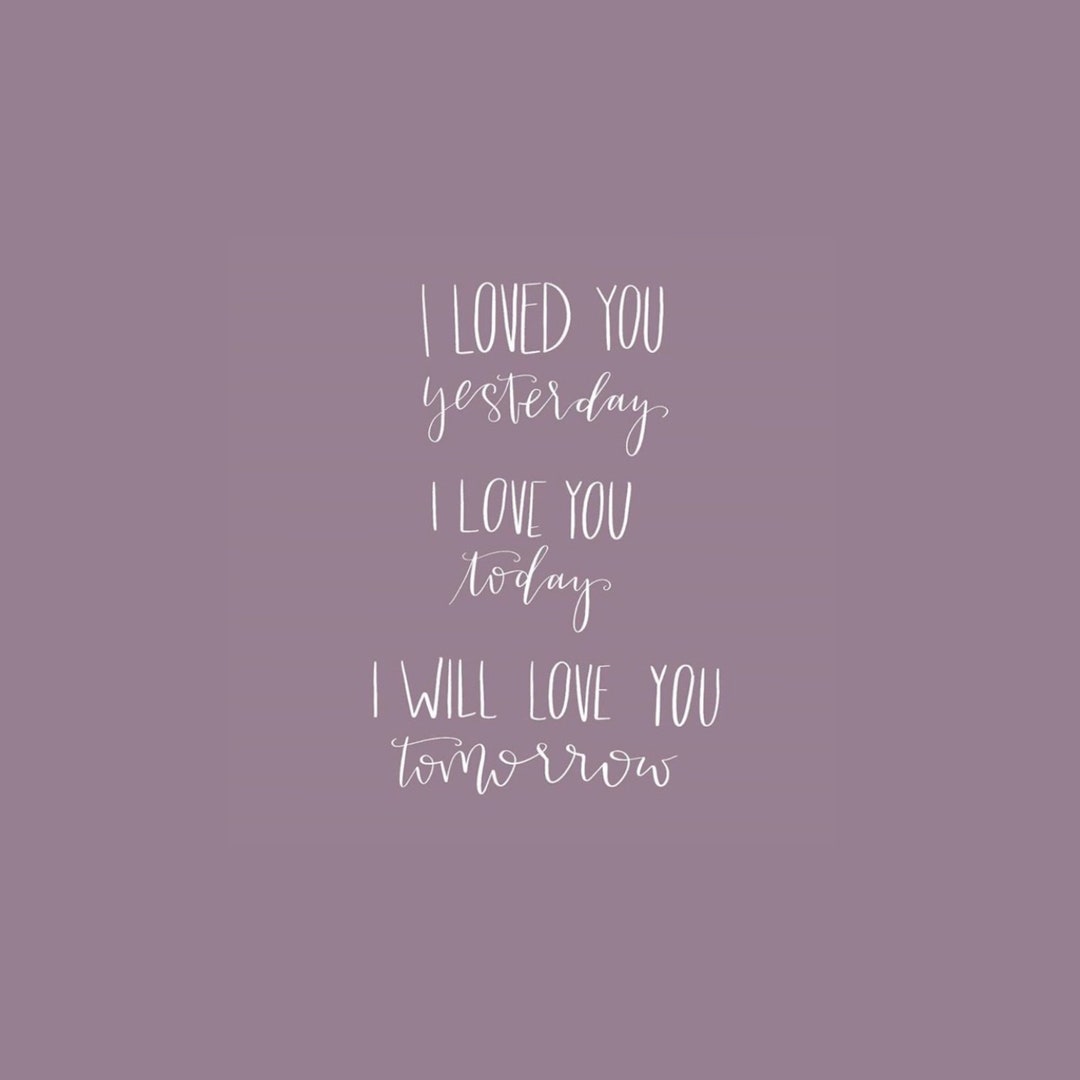 I LOVED YOU
yesterday
I LOVE YOU
today
I WILL LOVE YOU
tomorrow